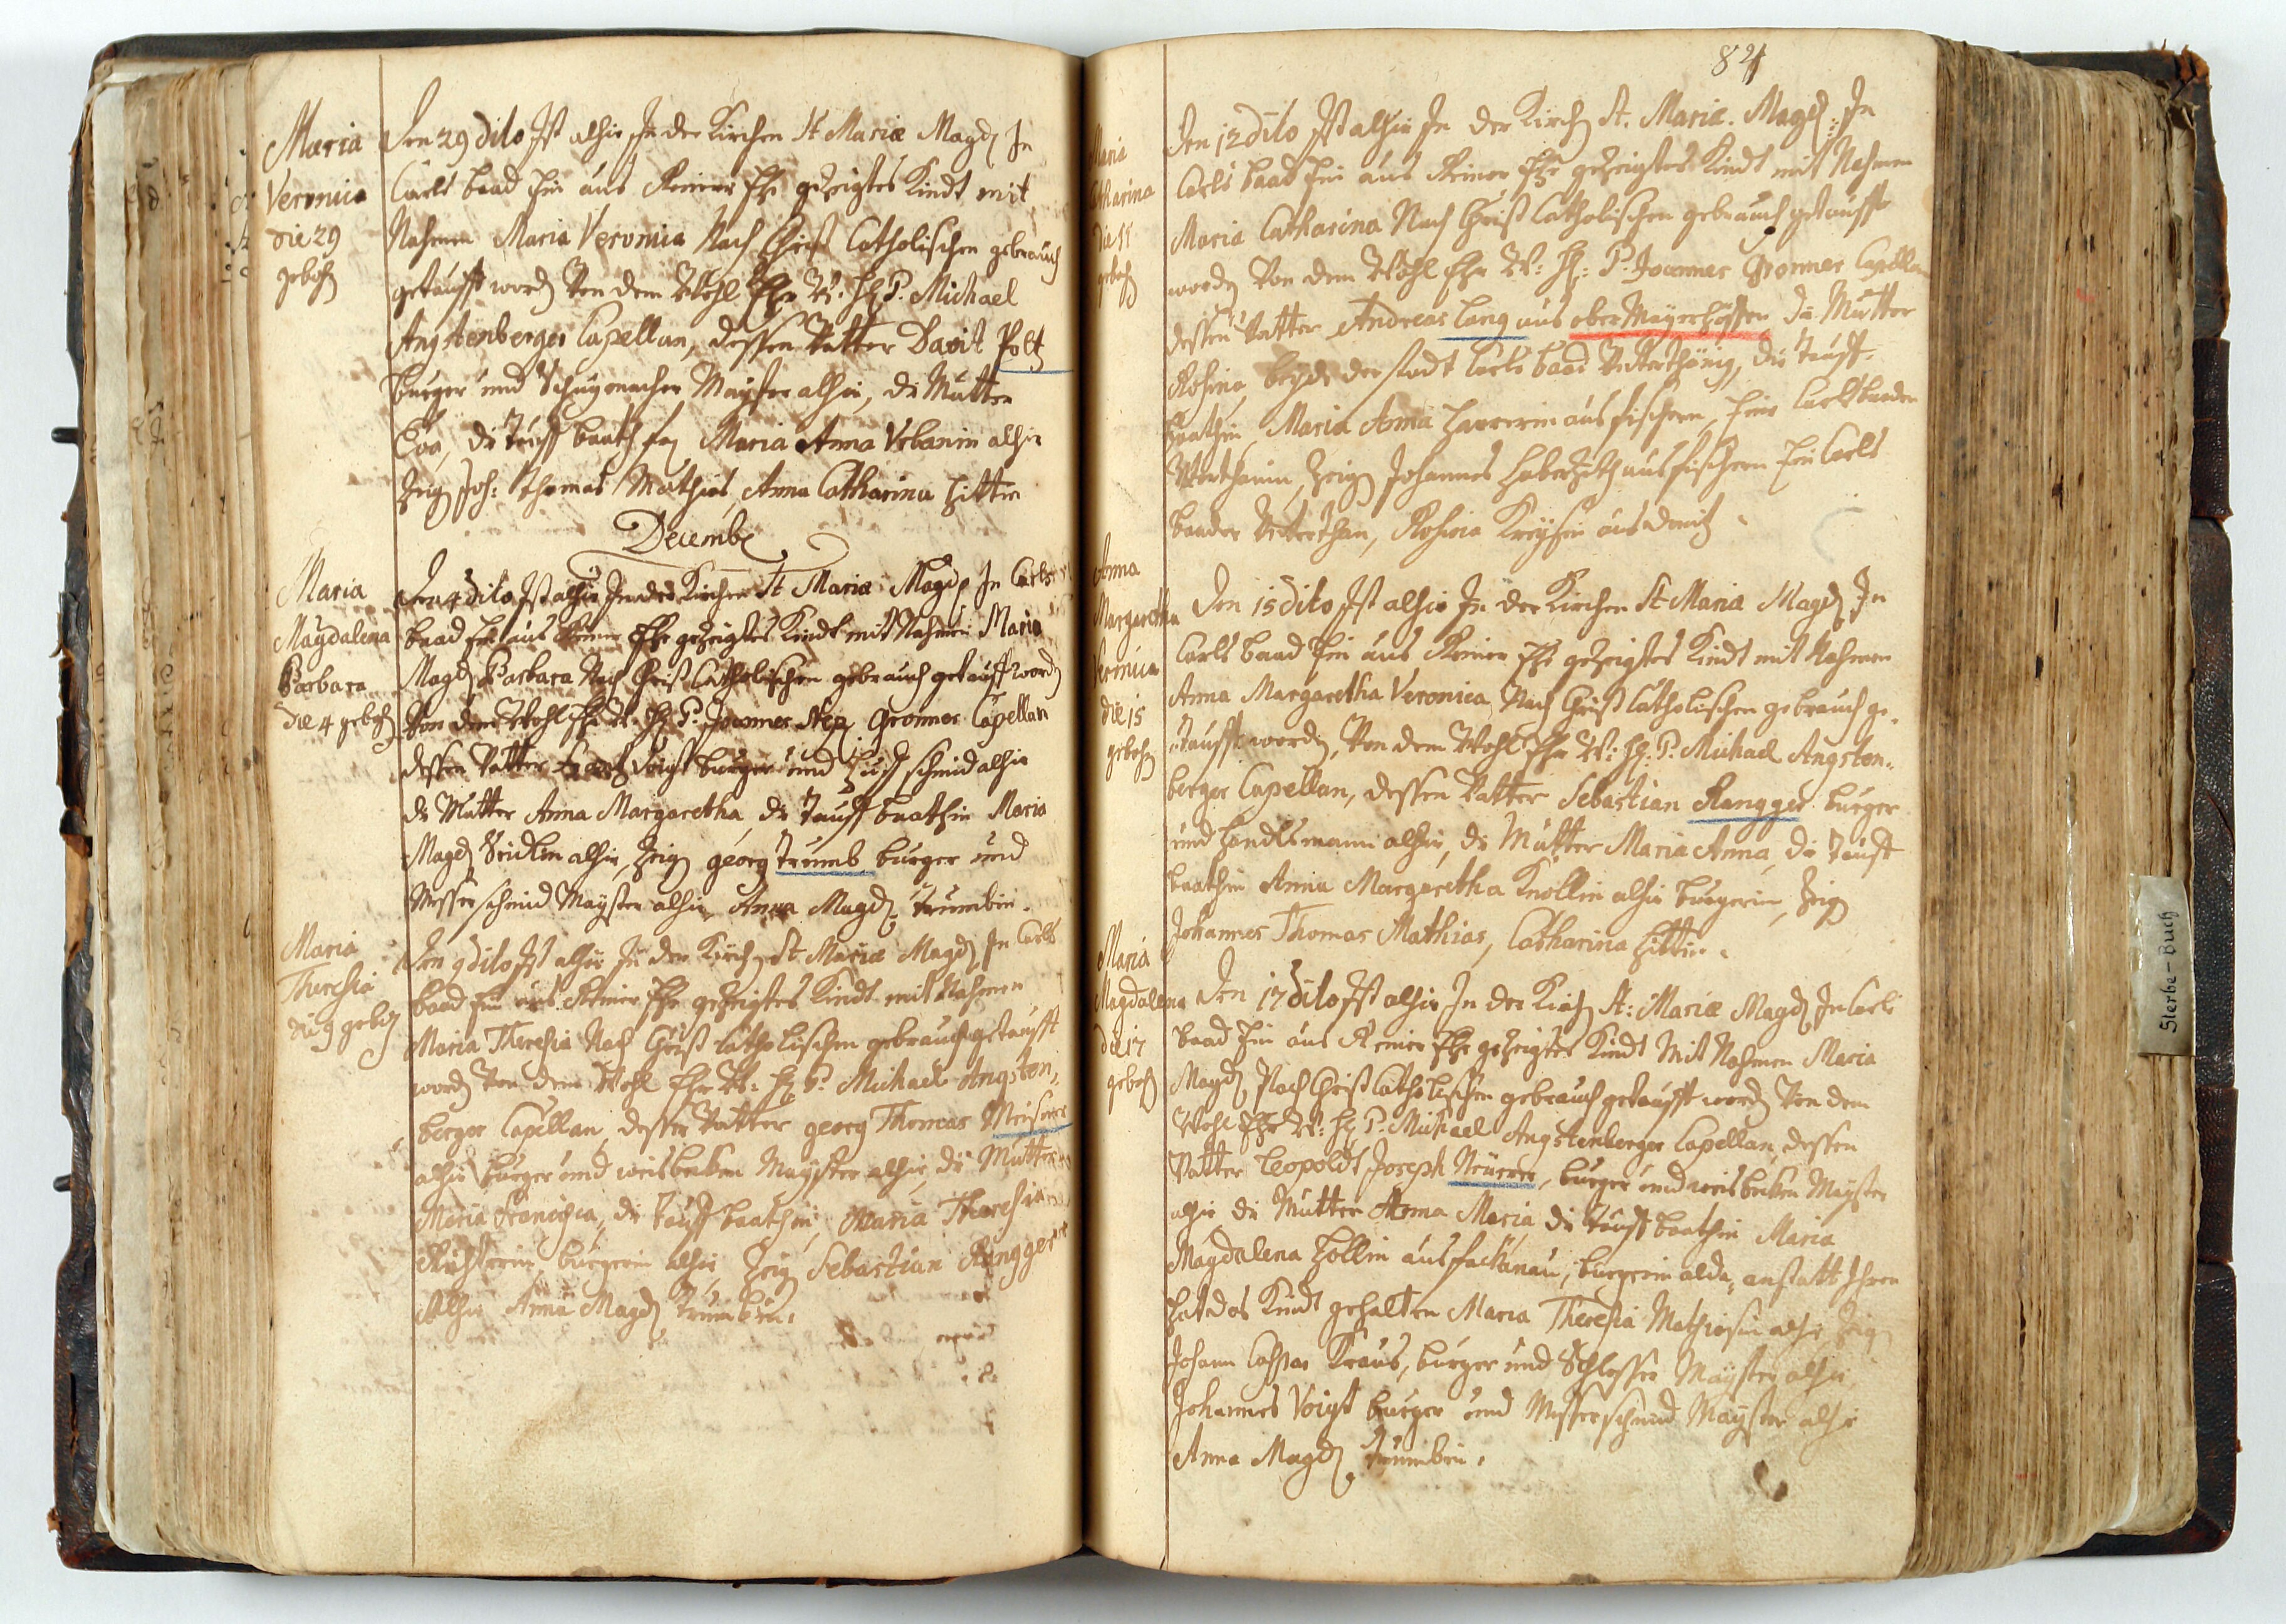 Maria
Veronica
die 29
geboh
Den 29 dito Ist alhir In der Kirchen St Mariæ Magd In
Carls baad Ein aus Reiner Ehe gezeigtes Kindt mit
Nahmen Maria Veronica Nach Christ Catholischen gebrauch
getaufft word Von dem Wohl Ehr W: H P. Michael
Angstenberger Capellan, dessen Vatter Davit Polt
burger und Schuemacher Mayster alhir, die Mutter
Eva, die tauff baath Maria Anna Urbanin alhir
Zeig Joh: Thomas Mathias, Anna Catharina Hittin
Decemb
Maria
Magdalena
Barbara
die 4 geboh
Den 4 dito Ist alhir In der Kirchen St Mariæ Magd In Carls
baad Ein aus Reiner Ehe gezeigtes Kindt mit Nahmen Maria
Magd Barbara Nach Christ Catholischen gebrauch getauff word
Von dem Wohl Ehr W: H P. Joannes Nep Gronner Capellan
dessen Vatter Voigt burger und Huff schmid alhir
die Mutter Anna Margaretha die Tauff baathin Maria
Magd alhir, Zeig georg Trumb burger und
Messerschmid Mayster alhir, Anna Magd Trumbin.
Maria
Theresia
die 9 geboh
Den 9 dito Ist alhir In der Kirch St Mariæ Magd In Carls
baad Ein aus Reiner Ehe gezeigtes Kindt mit Nahmen
Maria Theresia Nach Christ Catholischen gebrauch getaufft
word Von dem Wohl Ehr W: H P. Michael Angsten,
berger Capellan, dessen Vatter georg Thomas Meisner
alhir burger und weisbecken Mayster alhir, die Mutter
Maria Francisca, die Tauff baathin, Maria Theresia
burgerin alhir, Zeig Sebastian Rangger
Alhir Anna Magd Trumbin.
84
Maria
Catharina
die 11
geboh
Den 12 dito Ist alhir In der Kirch St. Mariæ. Magd: In
Carls baad Ein aus Reiner Ehe gezeigtes Kindt mit Nahmen
Maria Catharina Nach Christ Catholischen gebrauch getaufft
word Von dem Wohl Ehr W: H: P. Joannes Gronner Capellan
dessen Vatter Andreas Lang aus ober Mayerhöffen die Mutter
Rosina, beyde der stadt Carls baad Unterthänig, die Tauff-
baathin, Maria Anna aus fischern, Eine Carlsbaader
Unterthanin, Zeig Johannes Haberzeth aus fischern Ein Carls
baader Unterthan, Rosina aus donitz.
Anna
Margaretha
Veronica
die 15
geboh
Den 15 dito Ist alhir In der Kirchen St Mariæ Magd In
Carls baad Ein aus Reiner Ehe gezeigtes Kindt mit Nahmen
Anna Margaretha Veronica Nach Christ Catholischen gebrauch ge-
taufft word, Von dem Wohl Ehr W: H: P. Michael Angsten-
berger Capellan, dessen Vatter Sebastian Rangger burger
und Handlsmann alhir, die Mutter Maria Anna, die Tauff
baathin Anna Margaretha Knollin alhir burgerin, Zeig
Johannes Thomas Mathias, Catharina Hittin.
Maria
Magdalena
die 17
geboh
Den 17 dito Ist alhir In der Kirch St: Mariæ Magd In Carls
baad Ein aus Reiner Ehe gezeigtes Kindt Mit Nahmen Maria
Magd Nach Christ Catholischen gebrauch getaufft word Von dem
Wohl Ehr W: H P. Michael Angstenberger Capellan, dessen
Vatter Leopoldt Joseph, burger und weisbecken Mayster
alhir die Mutter Anna Maria, die tauff baathin Maria
Magdalena Zollin aus fackenau, burgerin alda, anstatt Ihrer
Hat das Kindt gehalten Maria Theresia Mathiasin alhir Zeig
Johann Caspar Kraus, burger und Schlosser Mayster alhir,
Johannes Voigt burger und Messerschmid Mayster alhir
Anna Magd Trumbin.
Sterbe-Buch